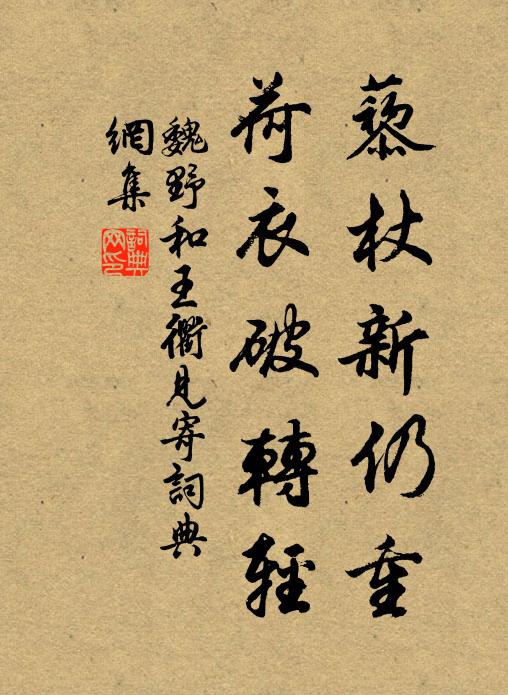 藜杖新仍重
荷衣破轉輕
魏野和王衢見寄詞典
網集
詞典
网印